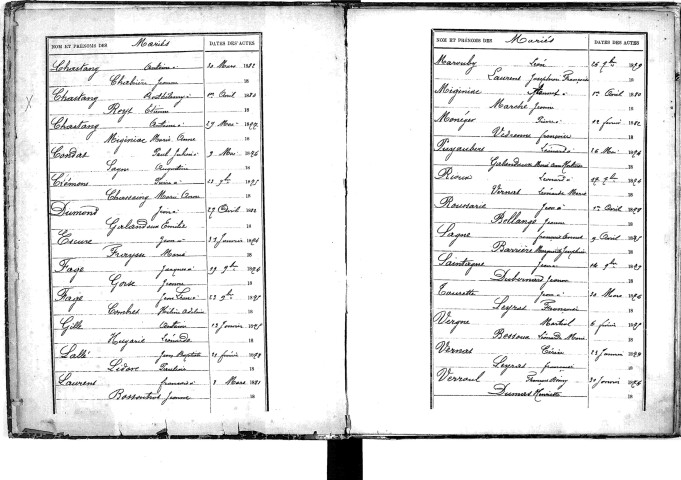 NOM ET PRÉNOMS DES Mariés DATES DES ACTES
Chastang Antoine à 20 Mars 1882
Chabrière Jeanne 18
Chastang Barthélemy à 1er Avril 1880
Roys Etienne 18
Chastang Antoine à 29 Mai 18
Miginiac Marie Anne 18
Condat Paul Julien à 9 Mai 1876
Sagne Augustine 18
Crémons à 23 9bre 1875
Chassaing Marie Anne 18
Dumond Jean à 27 Avril 1882
Galandeux Emilie 18
Jean à Janvier 1874
Fraysse Marie 18
Fage Jacques à 29 9bre 1874
Gorse Jeanne 18
Fage Jean Léon à 23 9bre 1875
Combes Adeline 18
Gille Antoine 13 Janvier 1875
Léonarde 18
Lallé Jean Baptiste 21 février 1879
Lidove Pauline 18
Laurent François à 1 Mars 1881
Bossoutrot Jeanne 18
NOM ET PRÉNOMS DES Mariés DATES DES ACTES
Marouby Léon 26 9bre 1879
Laurent Joséphine Françoise 18
Miginiac à 1er Avril 1880
Marché Jeanne 18
Monéger Pierre à 12 février 1882
Vedrenne françoise 18
Puyaubert Léonard à 26 Mai 1874
Galandeux Marie 18
Rioux Léonard à 9bre 1874
Vernat Léonarde Marie 18
Roussarie Jean à 1er Avril 1878
Bellange Jeanne 18
Sagne françois à 9 Avril 1875
Barrière Marguerite Joséphine 18
Saintagne Jean à 14 9bre 1879
Jeanne 18
Tourette Jean à 20 Mars 1876
Leyrat Françoise 18
Vergne Martial 6 février 1875
Bessoux Léonarde Marie 18
Vernat 23 Janvier 1877
Leyrat françoise 18
François Rémy 20 Janvier 1876
Dumas Henriette 18